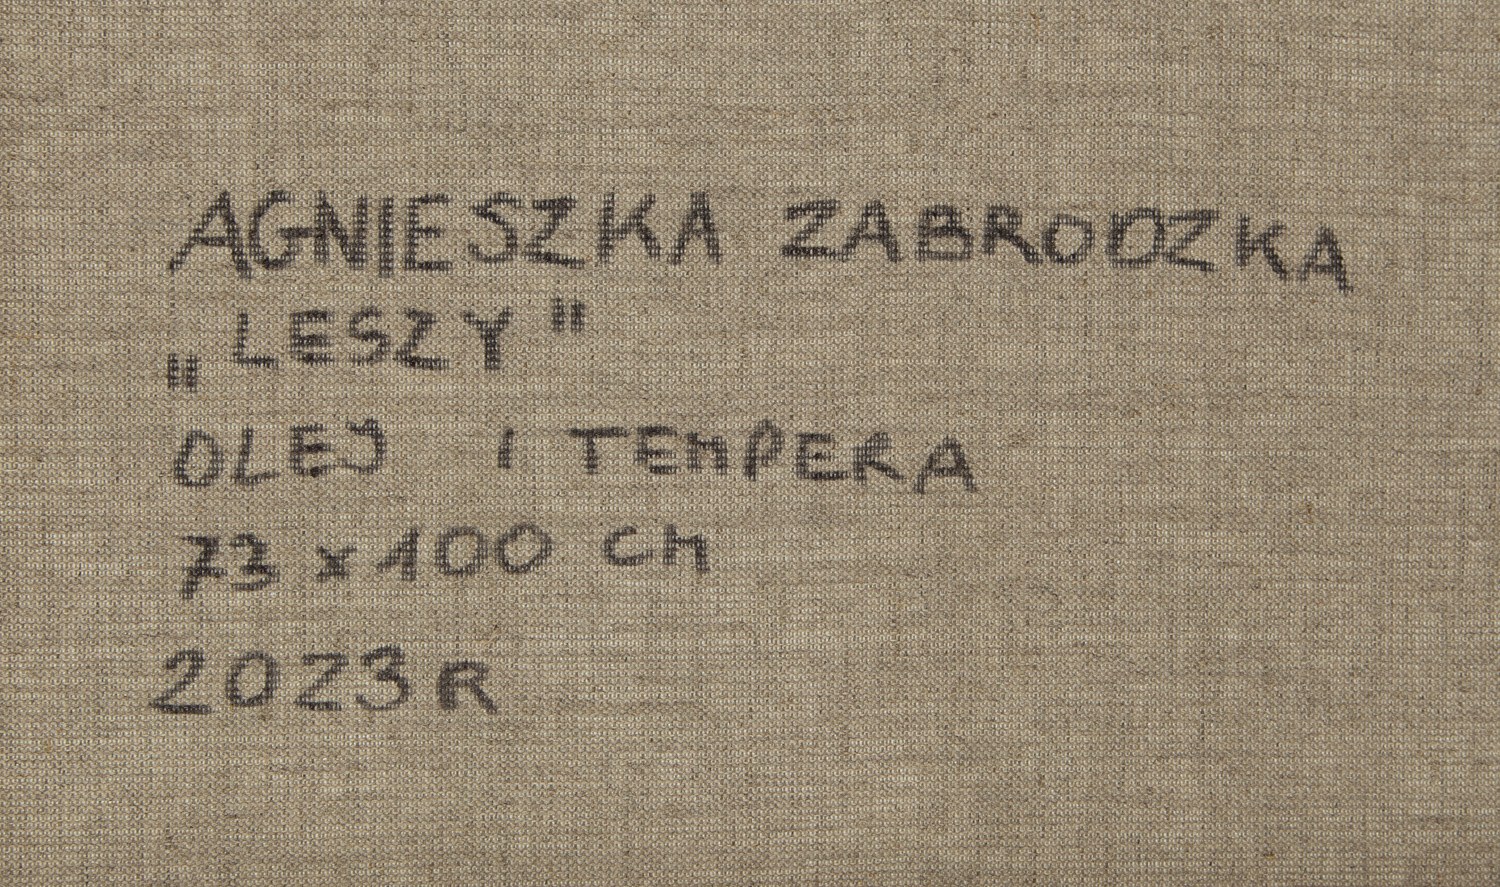 AGNIESZKA ZABRODZKA
„LESZY"
OLEJ I TEMPERA
73 x 100 cm
2023 R